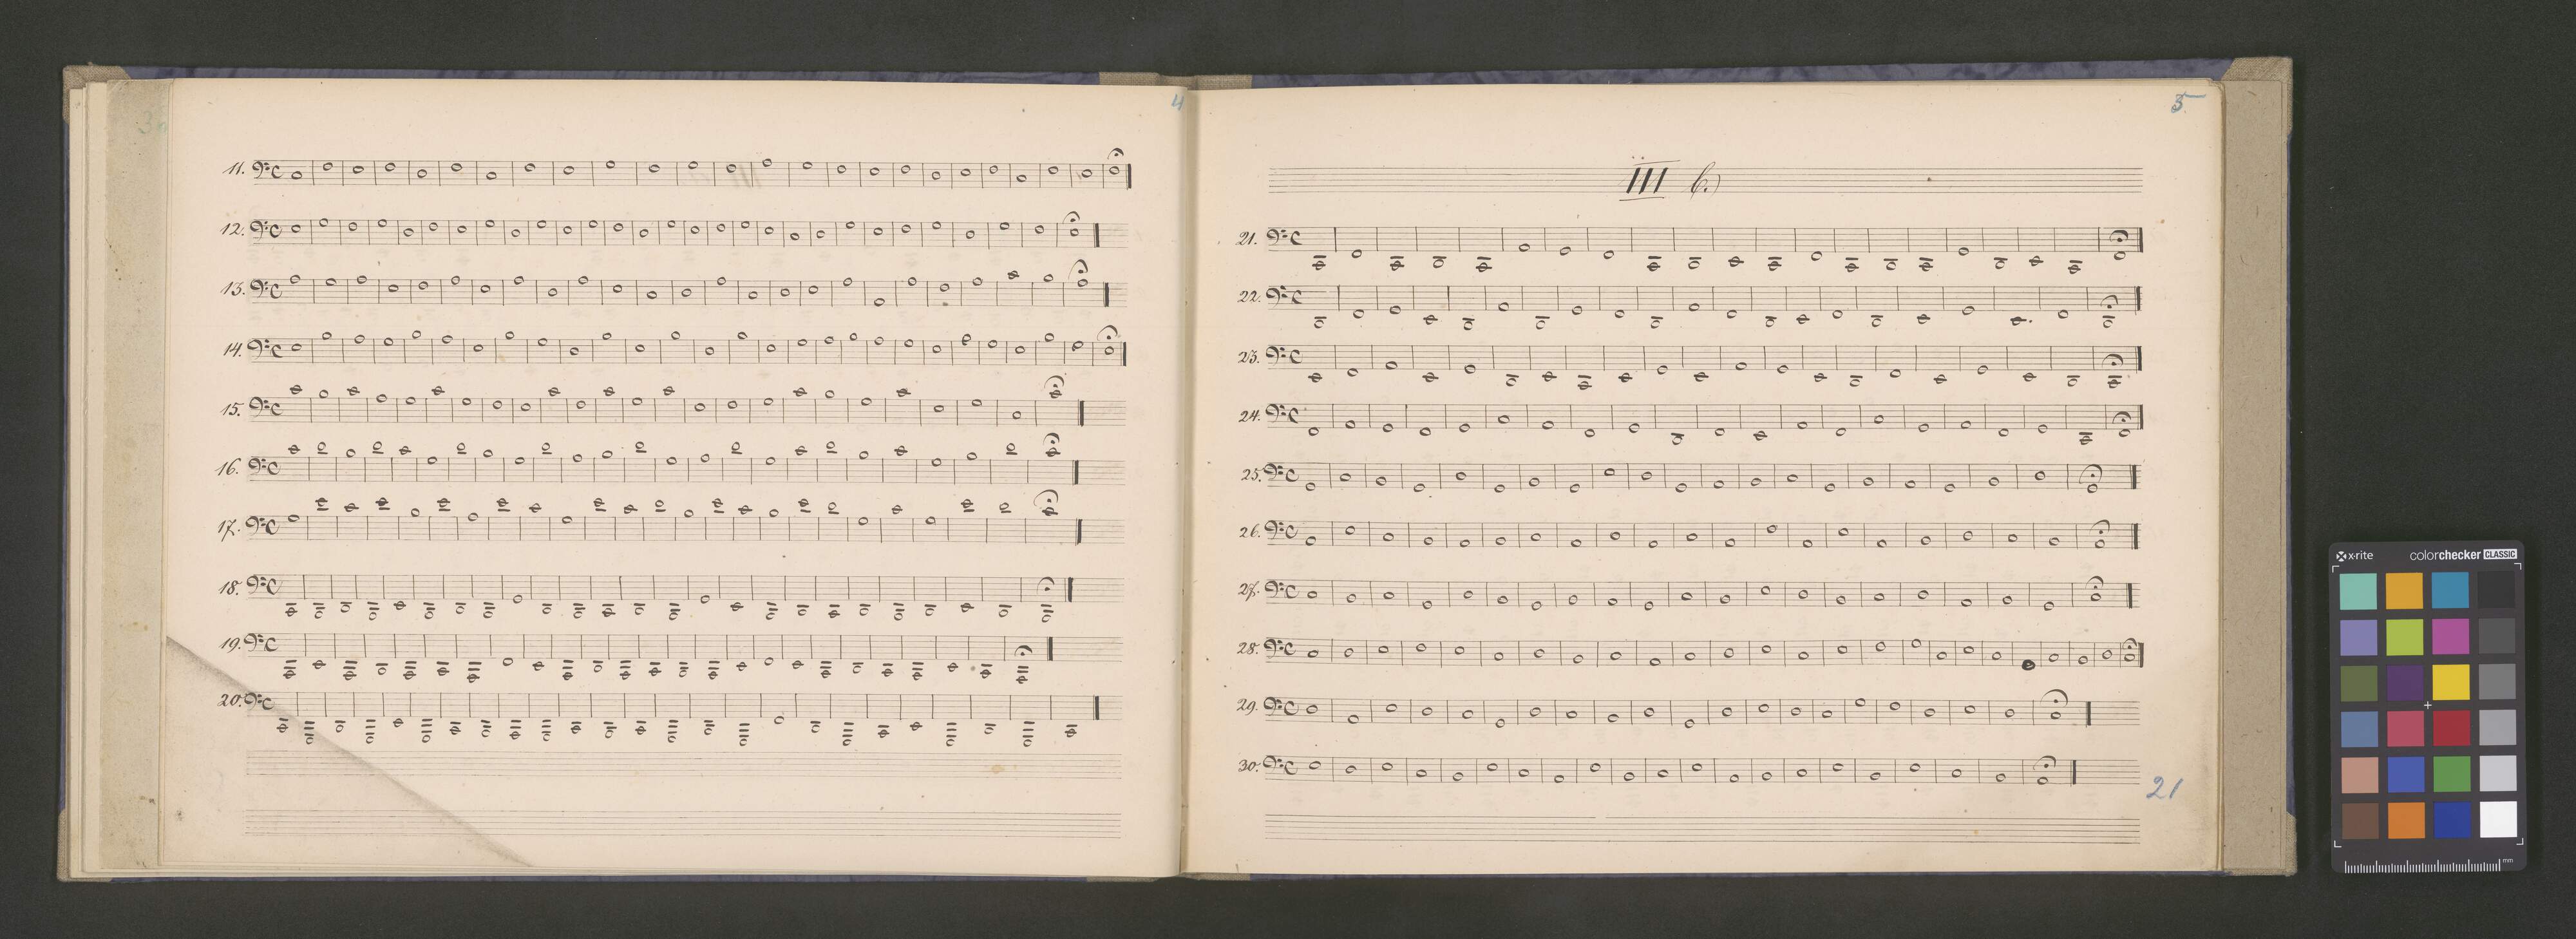 4
11.
12.
13.
14.
15.
16.
17.
18.
19.
20.
5
III b.)
21.
22.
23.
24.
25.
26.
27.
28.
29.
30.
21
x·rite colorchecker CLASSIC
mm